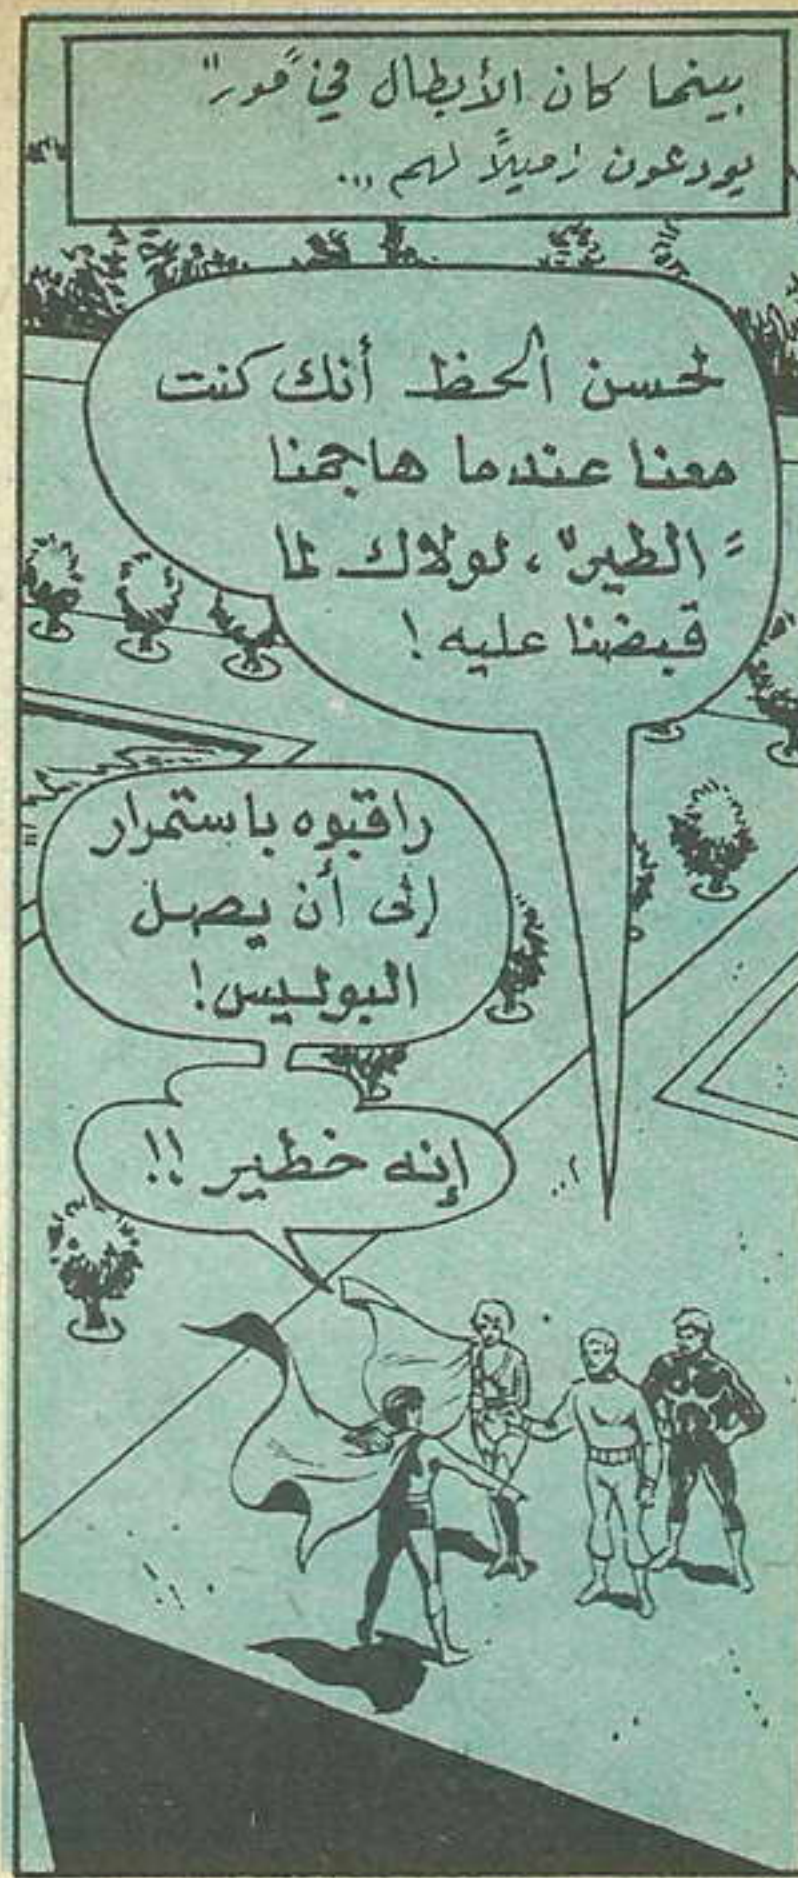 بينما كان الأبطال في "مور"
يودعون زميلاً لهم ...
لحسن الحظ أنك كنت
معنا عندما هاجمنا
"الطير"، لولاك لما
قبضنا عليه!
راقبوه باستمرار
إلى أن يصل
البوليس!
إنه خطير!!